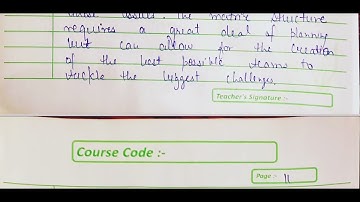 The matrix structure
requires a great deal of planning
but can allow for the creation
of the best possible teams to
tackle the biggest challenges.
Teacher's Signature :-
Course Code :-
Page :- 11